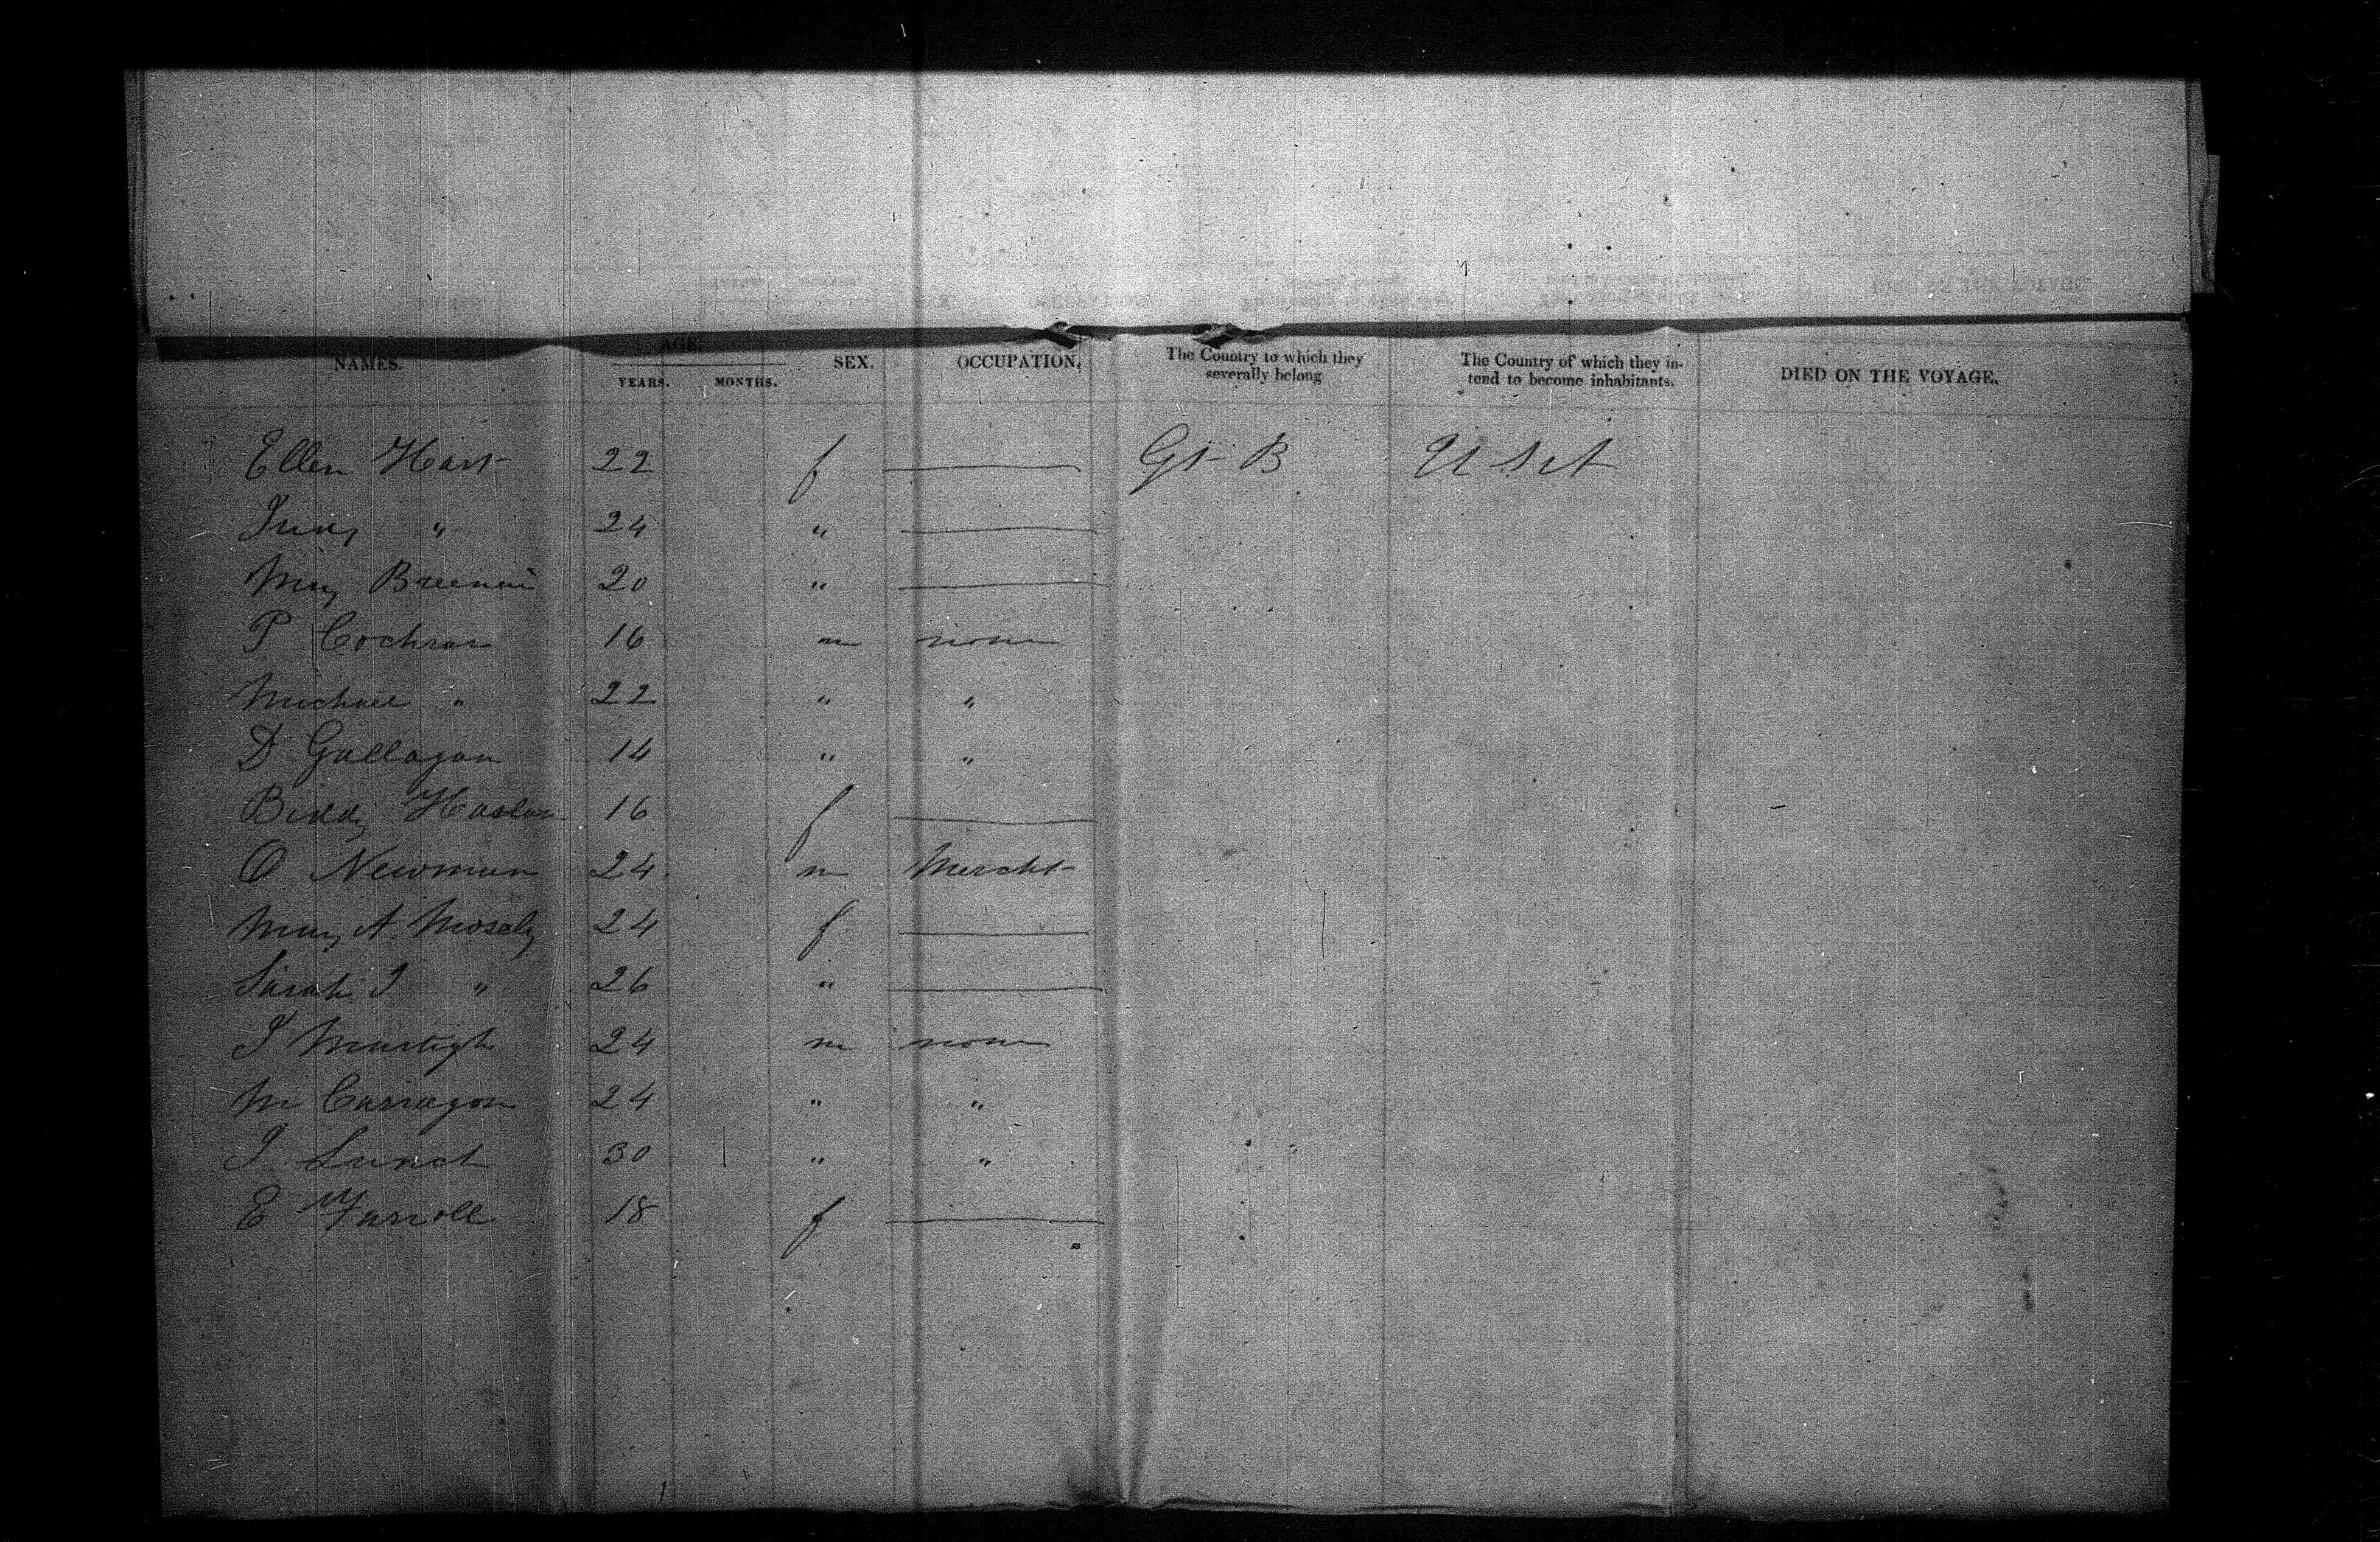 NAMES. AGE. YEARS. MONTHS. SEX. OCCUPATION. The Country to which they severally belong The Country of which they intend to become inhabitants. DIED ON THE VOYAGE.
Ellen Hart 22 f Gt B U St
Judy " 24 "
Mary 20 "
P Cochran 16 m none
Michael " 22 " "
D Gallagan 14 " "
Biddy Haslan 16 f
O Newman 24 m Mercht
Mary A. Mosely 24 f
Sarah J " 26 "
J Murtigh 24 m none
M Carragon 24 " "
J 30 " "
E Farroll 18 f